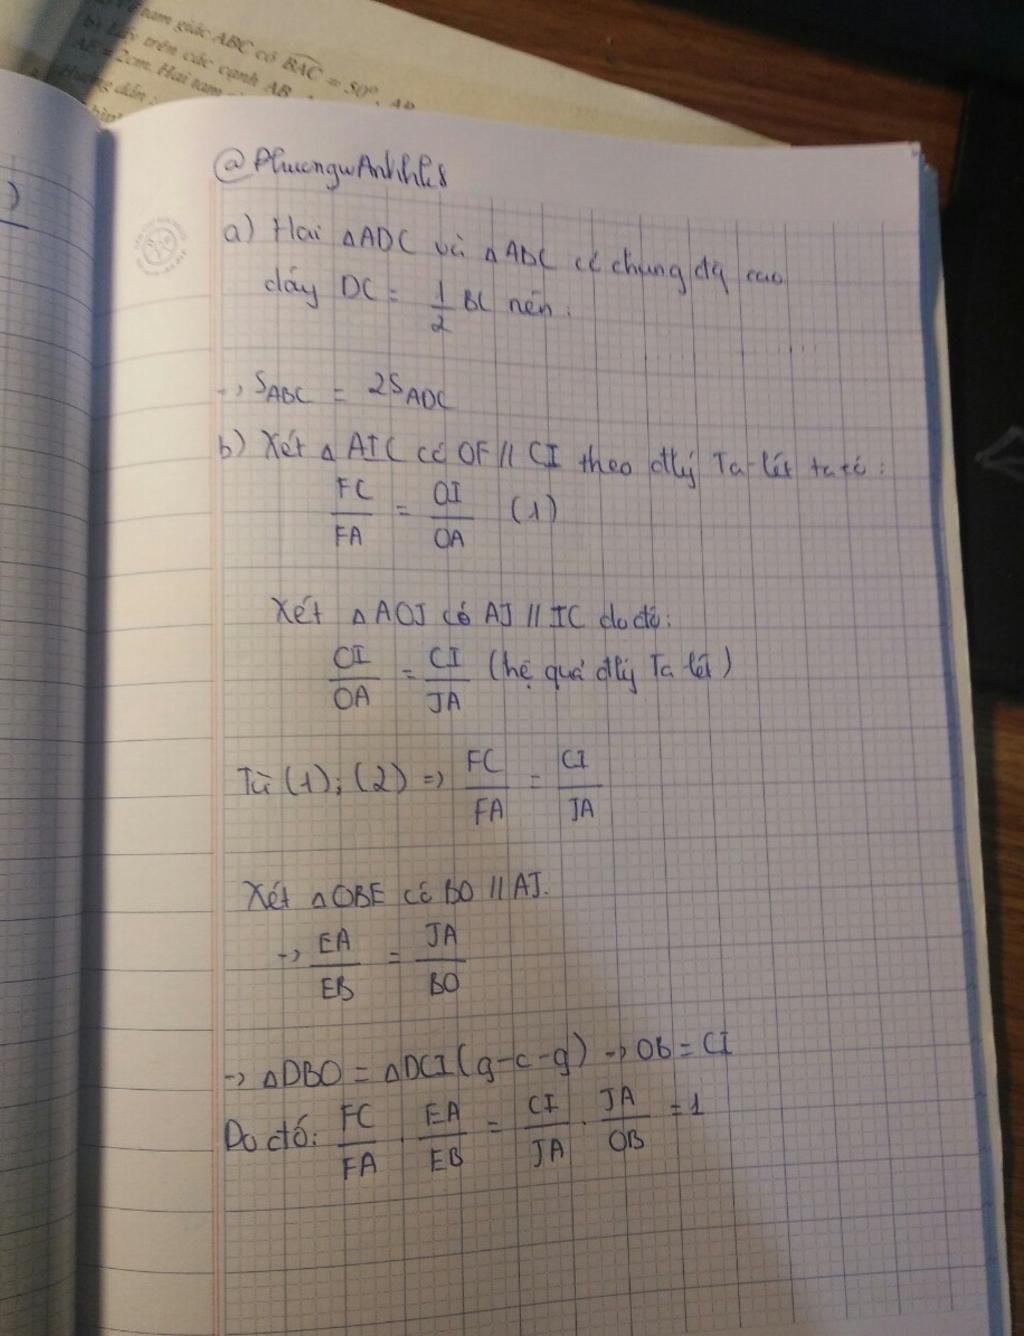 tam giác ABC có BAC = 50°
b) Lấy trên các cạnh AB
AE = 2cm. Hai tam
)
@PhuongwAnhhL8
a) Hai △ADC và △ABC có chung đg cao
đáy DC = 1/2 BC nên:
→ S_ABC = 2S_ADC
b) Xét △ AIC có OF // CI theo đlý Ta-lét ta có:
FC/FA = OI/OA (1)
Xét △AOJ có AJ // IC do đó:
OI/OA = CI/JA (hệ quả đlý Ta lét)
Từ (1); (2) => FC/FA = CI/JA
Xét △OBE có BO // AJ.
→ EA/EB = JA/BO
→ △DBO = △DCI (g-c-g) → OB = CI
Do đó: FC/FA . EA/EB = CI/JA . JA/OB = 1